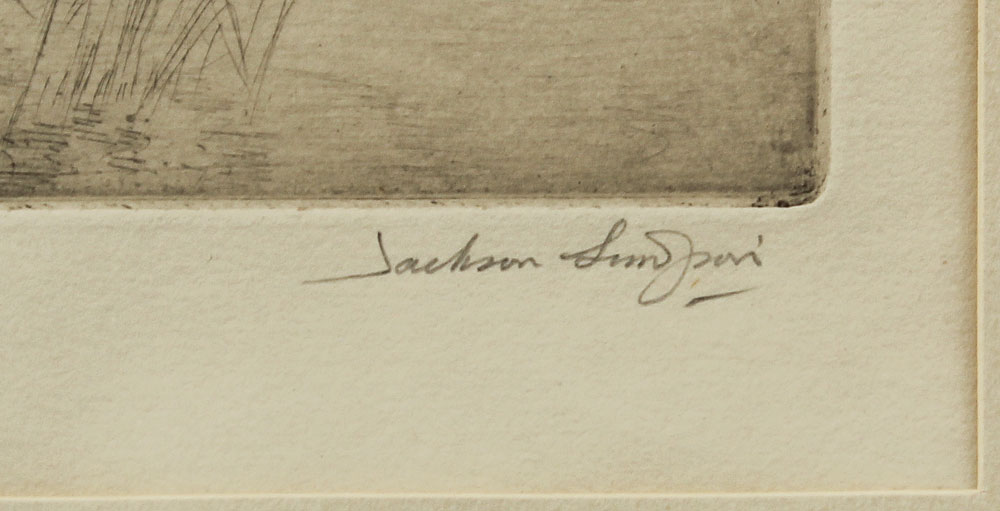 Jackson Simpson